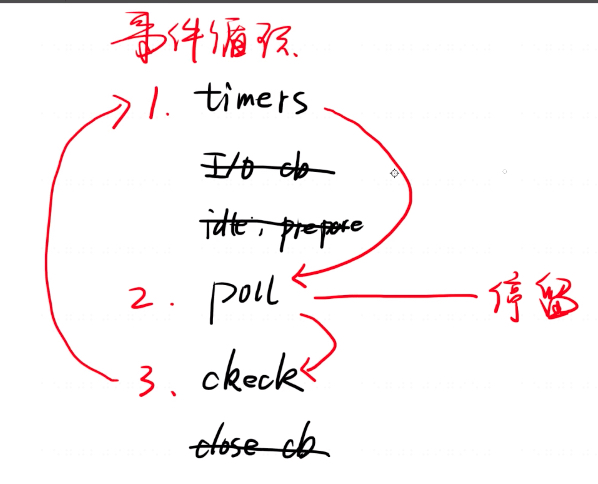 事件循环
1. timers
I/O cb
idle, prepare
2. poll —— 停留
3. ckeck
close cb